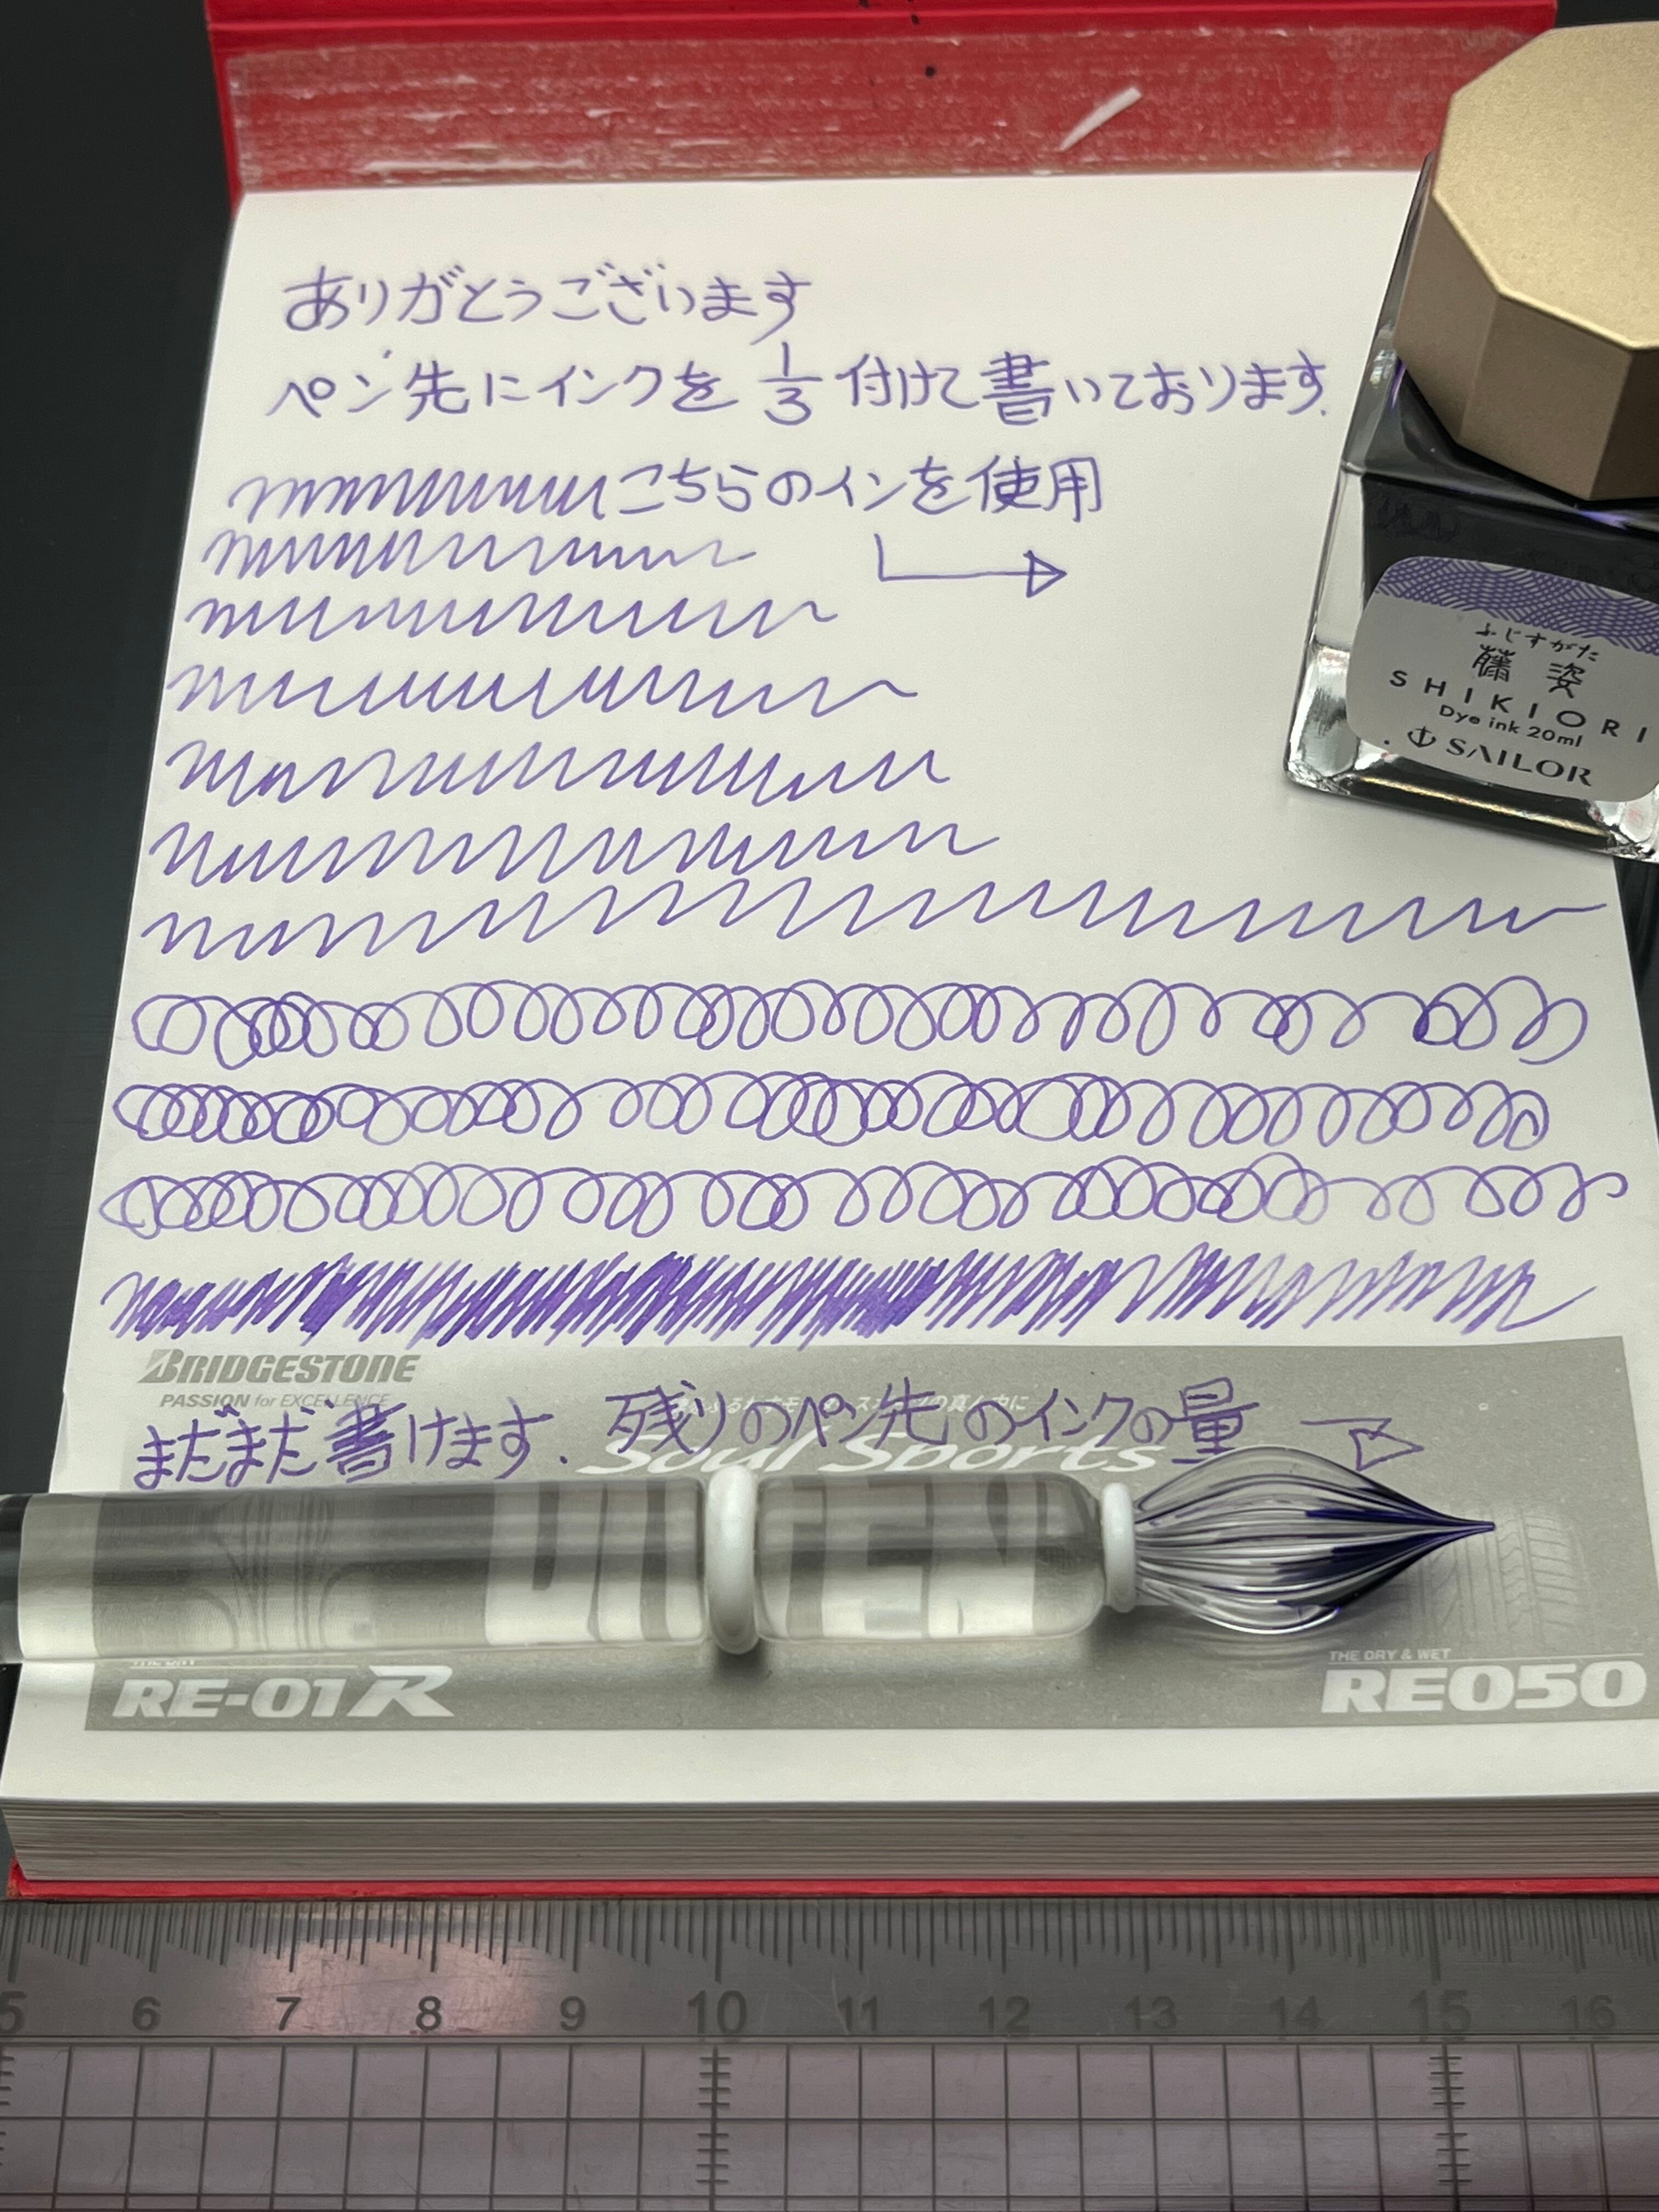 ありがとうございます
ペン先にインクを 1/3 付けて書いております.
こちらのインを使用
ふじすがた
藤姿
SHIKIORI
Dye ink 20ml
SAILOR
BRIDGESTONE
PASSION for EXCELLENCE
まだまだ書けます. 残りのペン先のインクの量
Soul Sports
RE-01R
THE DRY & WET
RE050
5 6 7 8 9 10 11 12 13 14 15 16